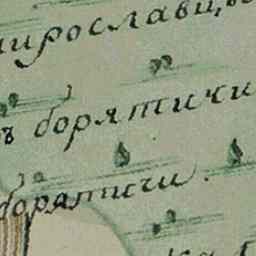 мирослави
ъ борятичи
борятичи